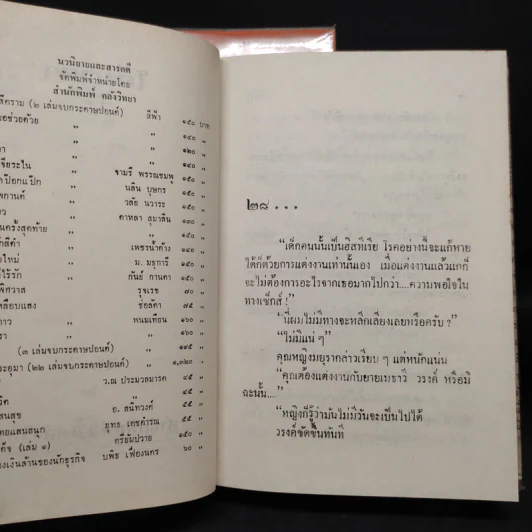 นวนิยายและสารคดี
จัดพิมพ์จำหน่ายโดย
สำนักพิมพ์ คลังวิทยา
สีคราม (๒ เล่มจบกระดาษปอนด์) สีฟ้า ๑๕๐ บาท
อยช่วยด้วย " " ๑๔๐ "
" " ๑๒๐ "
เจียระไน " " ๑๔๐ "
ปิยกแป๊ก " ชามรี พรรณชมพู ๑๕๐ "
พกานค์ " นลิน บุษกร ๑๕๐ "
" วลัย นวาระ ๑๕๐ "
นครั้งสุดท้าย " ดาหลา สุมาลิน ๑๓๐ "
กสีดำ " "
ใหม่ " เพชรน้ำค้าง ๑๔๐ "
ไร้รัก " ม. มธุการี ๑๕๐ "
พิศวาส " กันย์ กานดา ๑๕๐ "
คลือบแสง " รุจเรข ๘๐ "
าว " ช่อลัดา ๗๕ "
" พนมเทียน ๑๖๐ "
(๓ เล่มจบกระดาษปอนด์) ๑๔๕ "
ระอุมา (๒๒ เล่มจบกระดาษปอนด์) ๑,๓๒๐ "
ว.ณ ประมวลมารค ๔๕ "
ริค " " ๔๕ "
สนสุข " อ. สนิทวงศ์ ๕๕ "
ทยแสนสนุก " ยุทธ เดชคำรณ ๕๕ "
(เล่ม ๑) ตรียัมปวาย ๑๕๐ "
องเงินล้านของนักธุรกิจ บพิธ เฟื่องนคร ๖๐ "
๒๘ . . .
"เด็กคนนั้นเป็นฮิสทีเรีย โรคอย่างนี้จะแก้หาย
ได้ก็ด้วยการแต่งงานเท่านั้นเอง เมื่อแต่งงานแล้วแกก็
จะไม่ต้องการอะไรจากเธอมากไปกว่า....ความพอใจใน
ทางเซ็กส์ !"
"นี่ผมไม่มีทางจะหลีกเลี่ยงเลยหรือครับ ?"
"ไม่มีแน่ ๆ"
คุณหญิงมยุรากล่าวเรียบ ๆ แต่หนักแน่น
"คุณต้องแต่งงานกับยายเมธาวี วรงค์ หรือมิ
ฉะนั้น...."
"หญิงก็รู้ว่ามันไม่มีวันจะเป็นไปได้
วรงค์ขัดขึ้นทันที